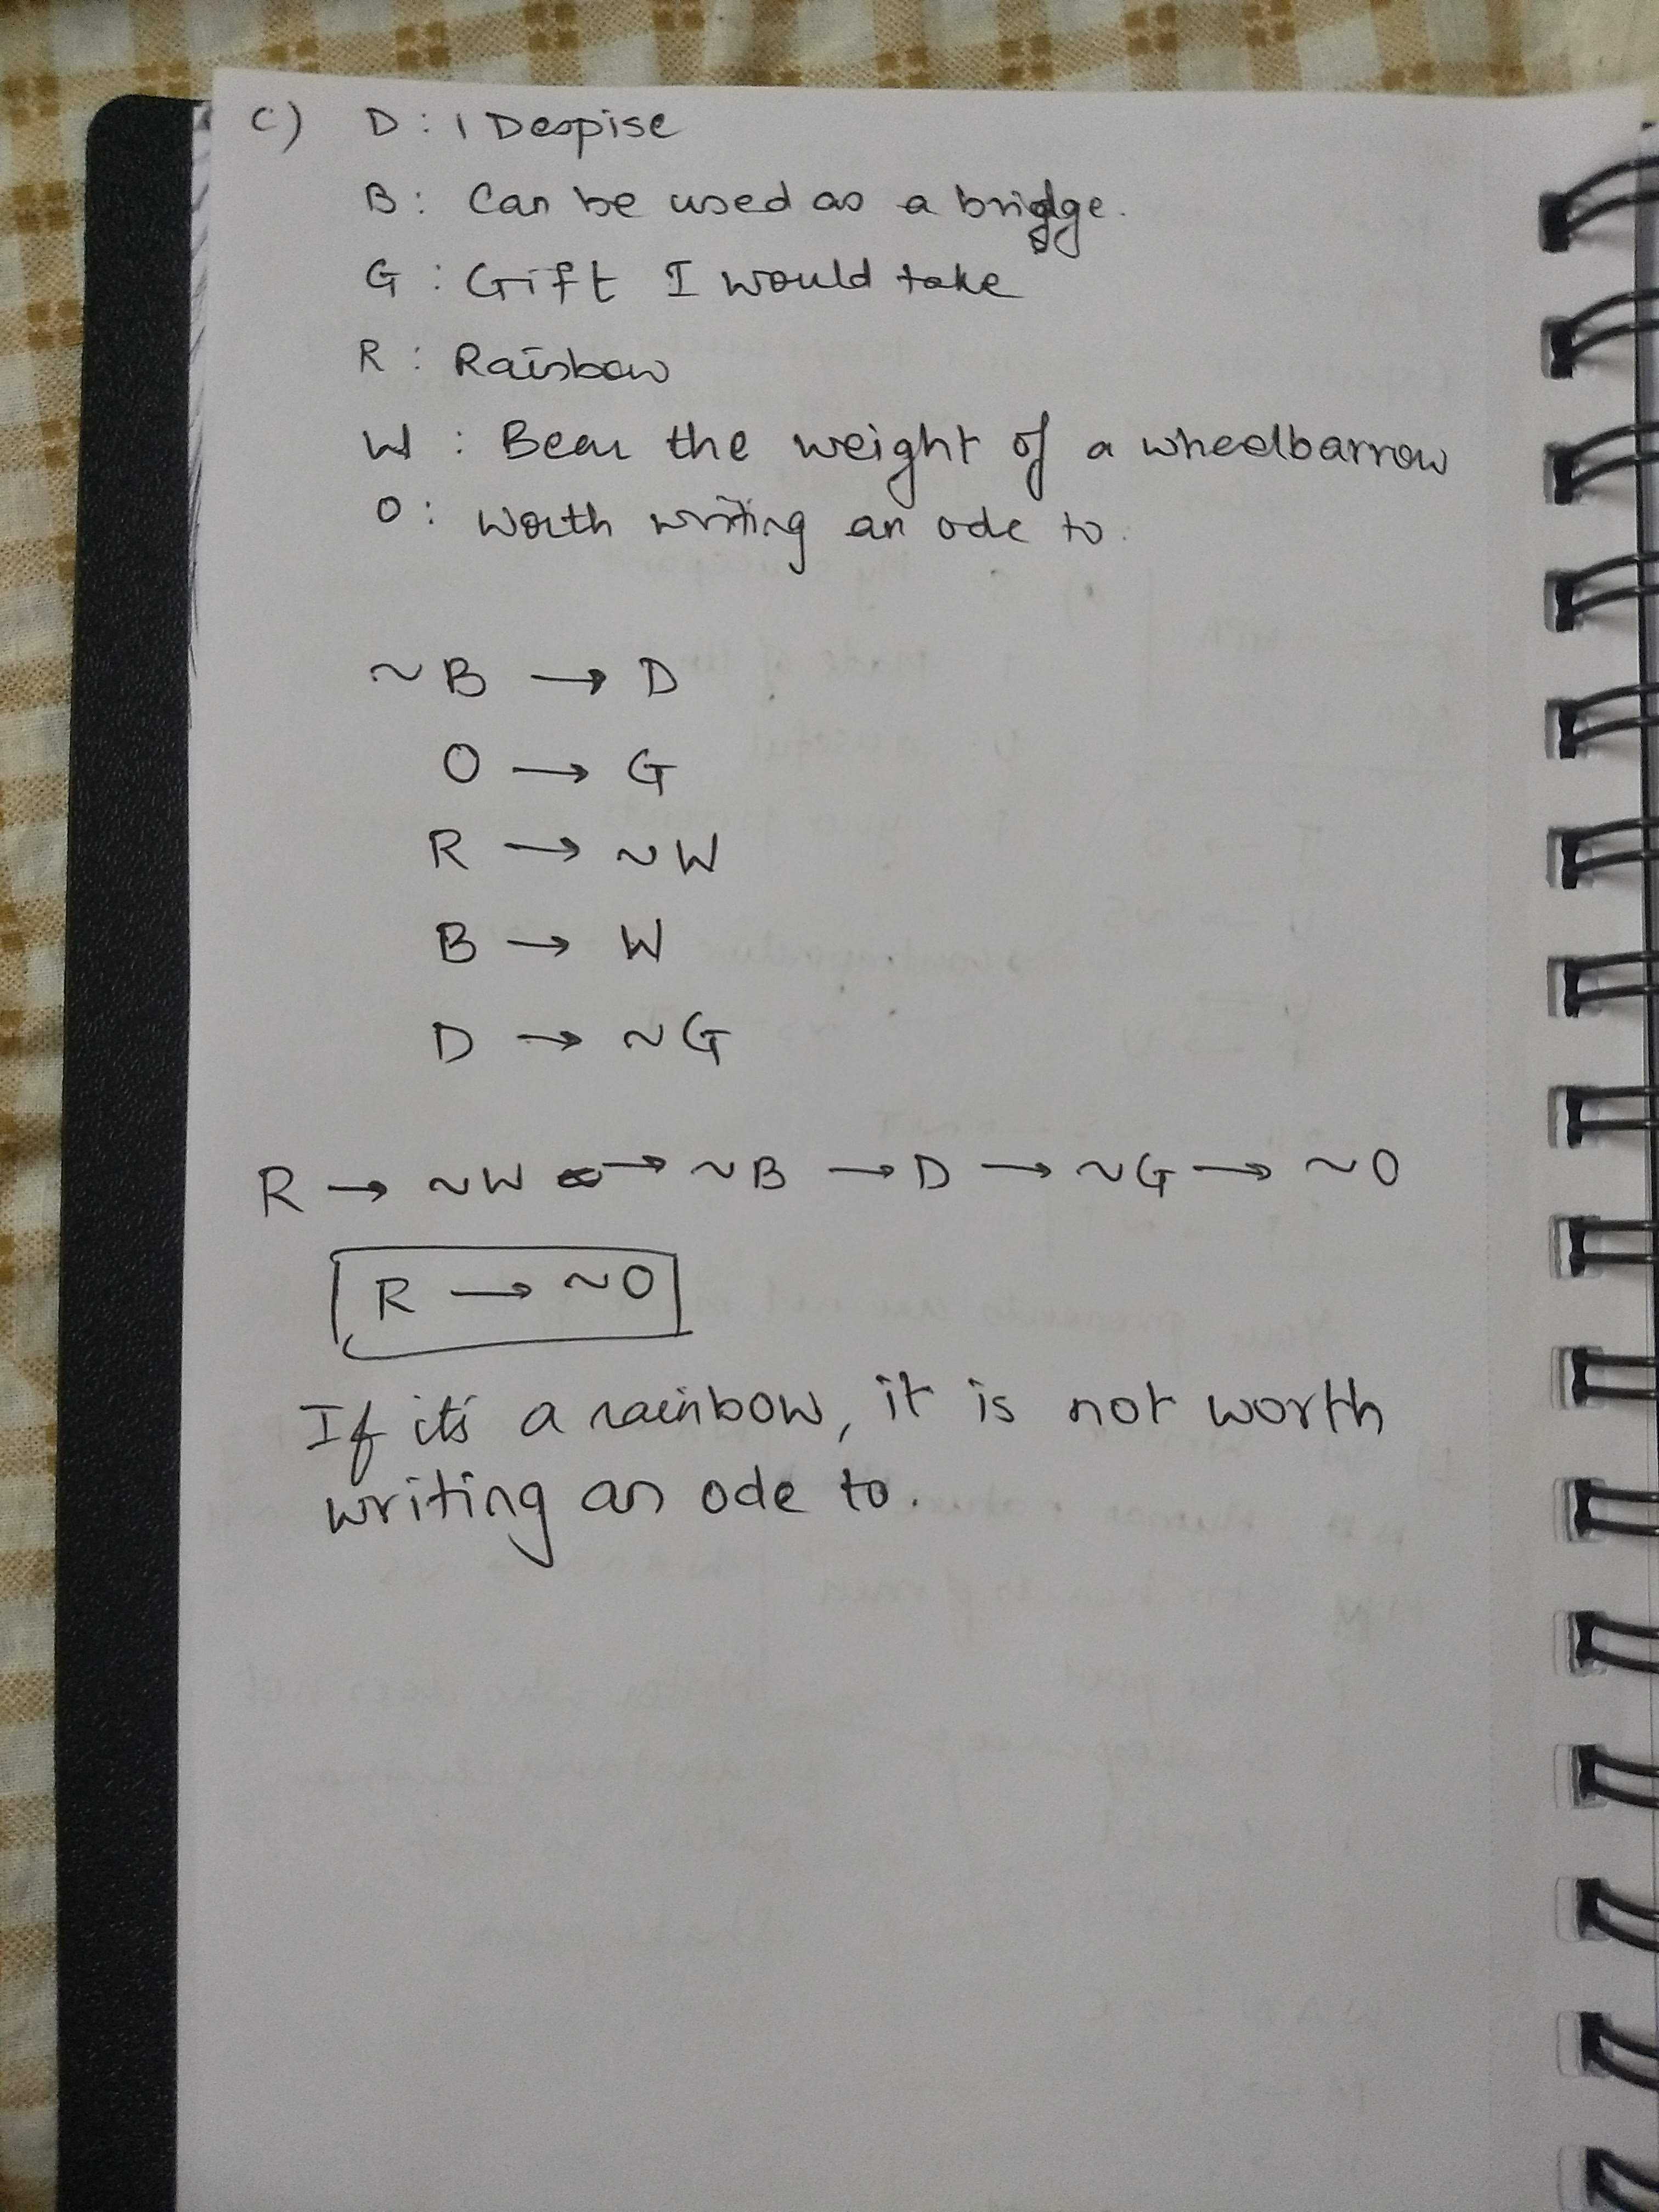 C) D : I Despise
B : Can be used as a bridge.
G : Gift I would take
R : Rainbow
W : Bear the weight of a wheelbarrow
O : Worth writing an ode to.
~B → D
O → G
R → ~W
B → W
D → ~G
R → ~W → ~B → D → ~G → ~O
R → ~O
If it's a rainbow, it is not worth
writing an ode to.